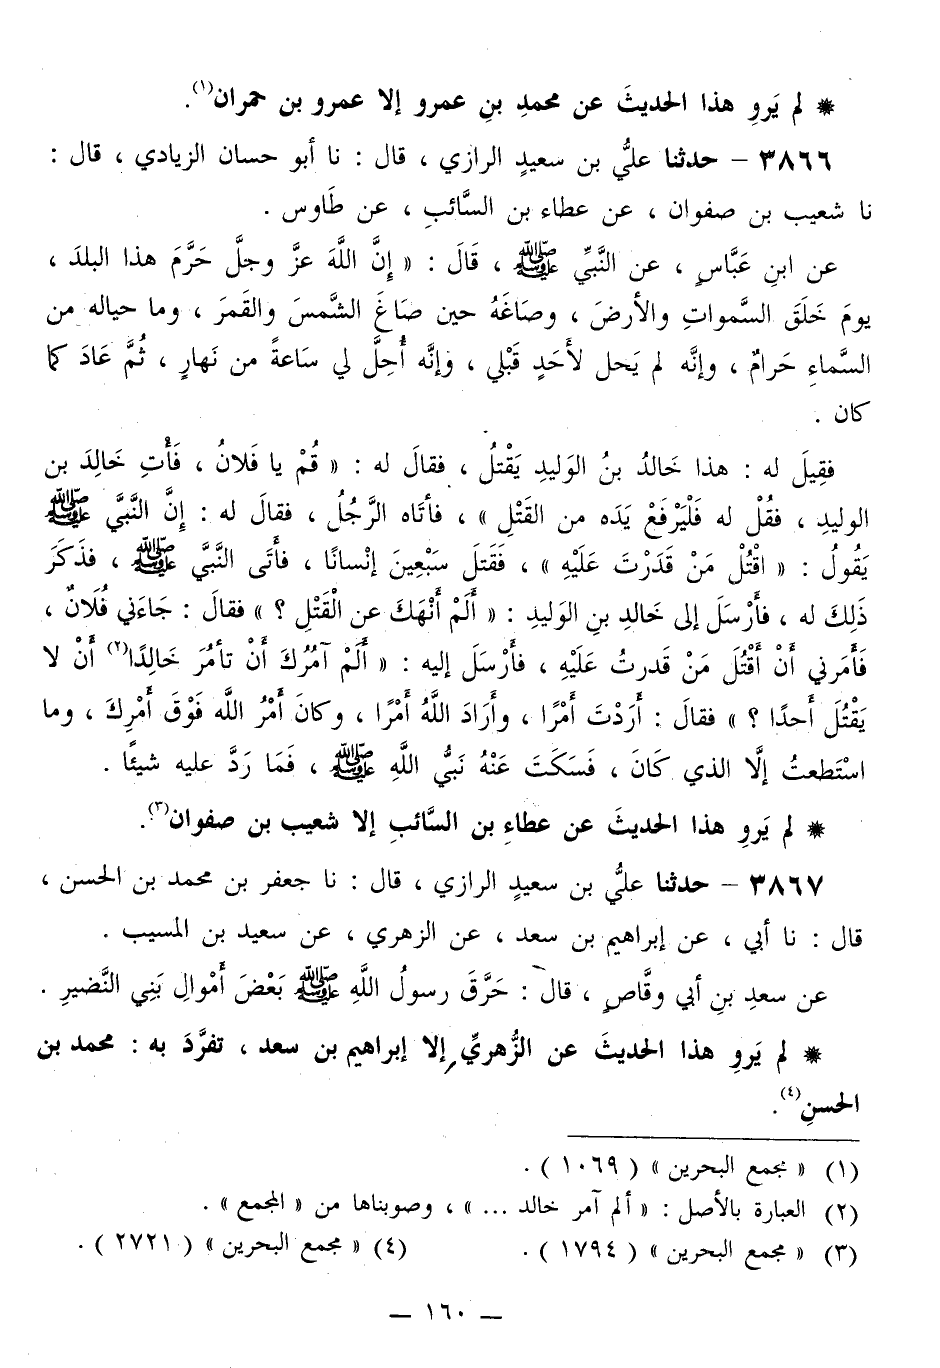 * لم يَروِ هذا الحديثَ عن محمدِ بنِ عمرو إلا عمرو بن حمران(١).
٣٨٦٦ – حدثنا عليُّ بن سعيدٍ الرازي ، قال : نا أبو حسان الزيادي ، قال :
نا شعيب بن صفوان ، عن عطاء بن السَّائبِ ، عن طَاوس .
عن ابنِ عَبَّاسٍ ، عن النَّبيِّ ﷺ ، قَالَ : « إِنَّ اللَّهَ عزَّ وجلَّ حَرَّمَ هذا البلدَ ،
يومَ خَلَقَ السَّمواتِ والأرضَ ، وصَاغَهُ حين صَاغَ الشَّمسَ والقَمرَ ، وما حياله من
السَّماءِ حَرامٌ ، وإنَّه لم يَحل لأَحَدٍ قَبْلي ، وإنَّه أُحِلَّ لي سَاعةً من نَهارٍ ، ثُمَّ عَادَ كما
كان .
فقِيلَ له : هذا خَالدُ بنُ الوَليدِ يَقْتلُ ، فقالَ له : « قُمْ يا فَلانُ ، فَأْتِ خَالِدَ بن
الوليدِ ، فقُلْ له فَلْيَرْفَعْ يَدَه من القَتْلِ » ، فأتَاه الرَّجُلُ ، فقالَ له : إنَّ النَّبيَّ ﷺ
يَقُولُ : « اقْتُلْ مَنْ قَدَرْتَ عَلَيْهِ » ، فَقَتلَ سَبْعِينَ إنْسانًا ، فأَتَى النَّبيَّ ﷺ ، فذَكَرَ
ذَلِكَ له ، فأَرْسَلَ إلى خَالدِ بنِ الوَليدِ : « أَلَمْ أَنْهَكَ عن الْقَتْلِ ؟ » فقالَ : جَاءَني فُلَانٌ ،
فَأَمَرني أَنْ أَقْتُلَ مَنْ قَدرتُ عَلَيْهِ ، فأَرْسَلَ إليه : « أَلَمْ آمُرُكَ أَنْ تأمُرَ خَالِدًا(٢) أَنْ لا
يَقْتُلَ أَحدًا ؟ » فقالَ : أَرَدْتَ أَمْرًا ، وأَرَادَ اللَّهُ أَمْرًا ، وكانَ أَمْرُ اللَّه فَوْقَ أَمْرِكَ ، وما
اسْتَطعتُ إلَّا الذي كَانَ ، فَسَكَتَ عَنْهُ نَبيُّ اللَّهِ ﷺ ، فَمَا رَدَّ عليه شيئًا .
* لم يَروِ هذا الحديثَ عن عطاءِ بن السَّائبِ إلا شعيب بن صفوان(٣).
٣٨٦٧ – حدثنا عليُّ بن سعيدٍ الرازي ، قال : نا جعفر بن محمد بن الحسن ،
قال : نا أبي ، عن إبراهيم بن سعد ، عن الزهري ، عن سعيد بن المسيب .
عن سعدِ بنِ أبي وقَّاصٍ ، قال : حَرَّقَ رسولُ اللَّهِ ﷺ بَعْضَ أَمْوالِ بَنِي النَّضيرِ .
* لم يَروِ هذا الحديثَ عن الزُّهريِّ إلا إبراهيم بن سعد ، تفرَّدَ به : محمد بن
الحسنِ(٤).
(١) « مجمع البحرين » ( ١٠٦٩ ) .
(٢) العبارة بالأصل : « ألم آمر خالد ... » ، وصوبناها من « المجمع » .
(٣) « مجمع البحرين » ( ١٧٩٤ ) . (٤) « مجمع البحرين » ( ٢٧٢١ ) .
— ١٦٠ —